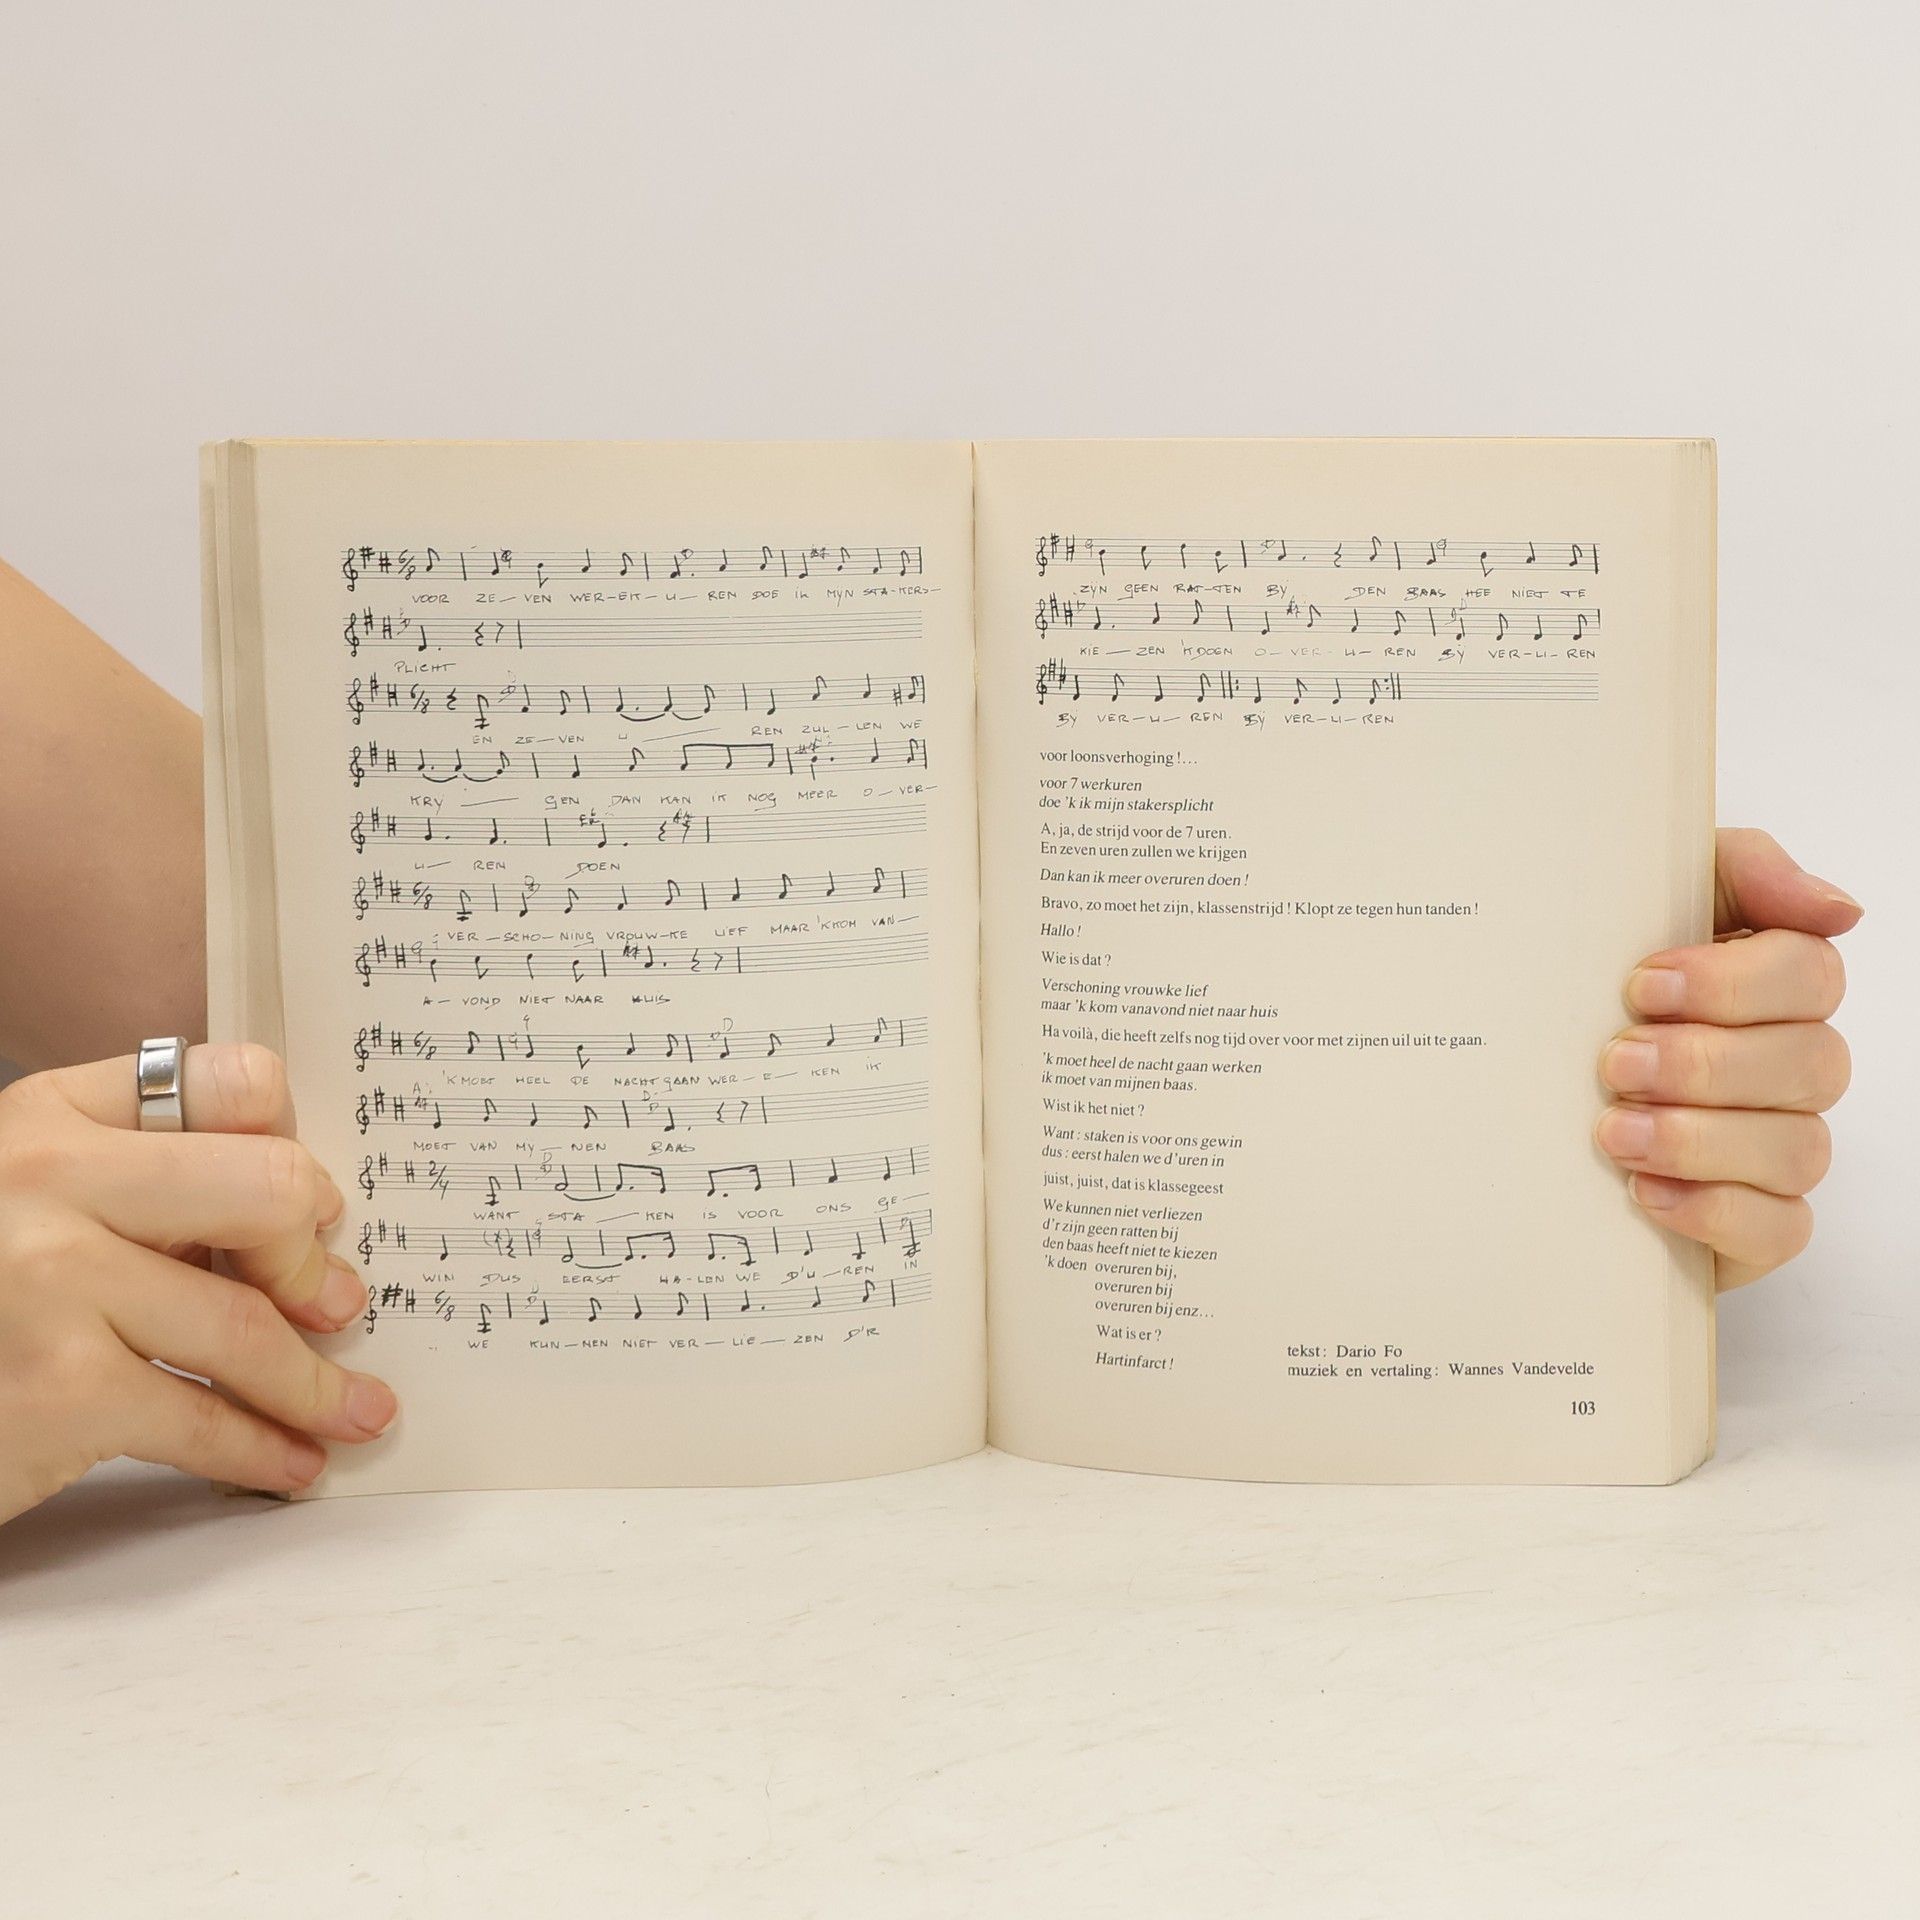 VOOR ZE–VEN WER–EK–U–REN DOE iK MYN STA–KERS–
PLICHT
EN ZE–VEN U–REN ZUL–LEN WE
KRY–GEN DAN KAN IK NOG MEER O–VER–
U–REN DOEN
VER–SCHO–NING VROUW–KE LIEF MAAR 'K KOM VAN–
A–VOND NIET NAAR HUIS
'K MOET HEEL DE NACHT GAAN WER–E–KEN IK
MOET VAN MY–NEN BAAS
WANT STA–KEN IS VOOR ONS GE–
WIN DUS EERST HA–LEN WE D'U–REN IN
WE KUN–NEN NIET VER–LIE–ZEN D'R
ZŸN GEEN RAT–TEN BŸ DEN BAAS HEE NIET TE
KIE–ZEN 'K DOEN O–VER–U–REN BŸ VER–U–REN
BŸ VER–U–REN BŸ VER–U–REN
voor loonsverhoging !…
voor 7 werkuren
doe 'k ik mijn stakersplicht
A, ja, de strijd voor de 7 uren.
En zeven uren zullen we krijgen
Dan kan ik meer overuren doen !
Bravo, zo moet het zijn, klassenstrijd ! Klopt ze tegen hun tanden !
Hallo !
Wie is dat ?
Verschoning vrouwke lief
maar 'k kom vanavond niet naar huis
Ha voilà, die heeft zelfs nog tijd over voor met zijnen uil uit te gaan.
'k moet heel de nacht gaan werken
ik moet van mijnen baas.
Wist ik het niet ?
Want : staken is voor ons gewin
dus : eerst halen we d'uren in
juist, juist, dat is klassegeest
We kunnen niet verliezen
d'r zijn geen ratten bij
den baas heeft niet te kiezen
'k doen overuren bij,
overuren bij
overuren bij enz…
Wat is er ?
Hartinfarct !
tekst : Dario Fo
muziek en vertaling : Wannes Vandevelde
103